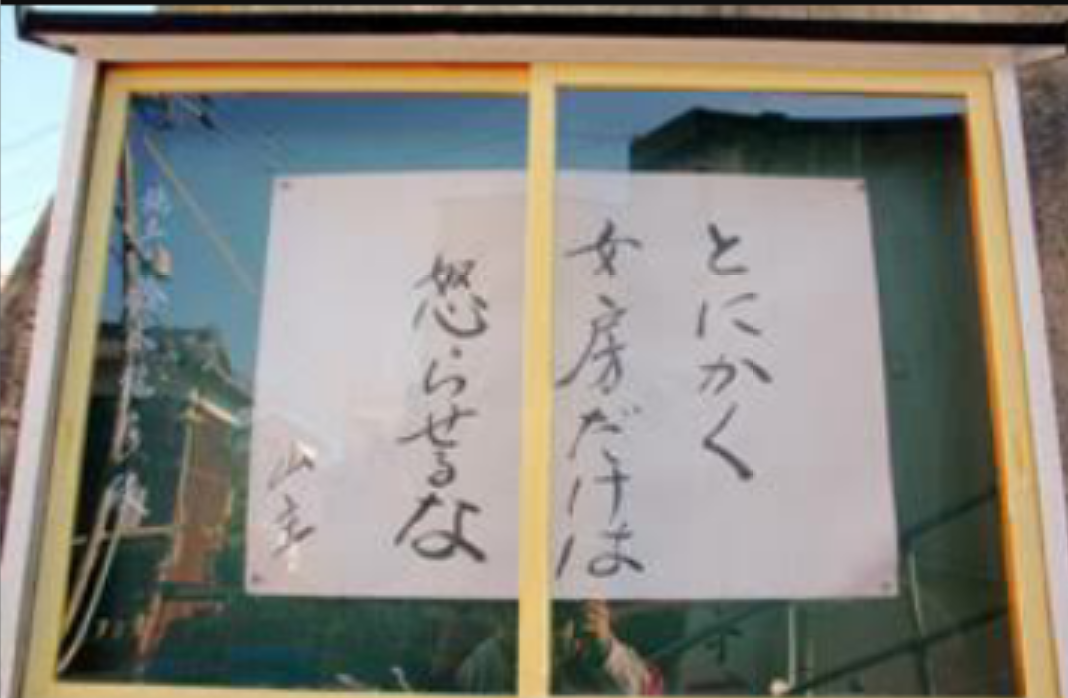 とにかく
女房だけは
怒らせるな
山主